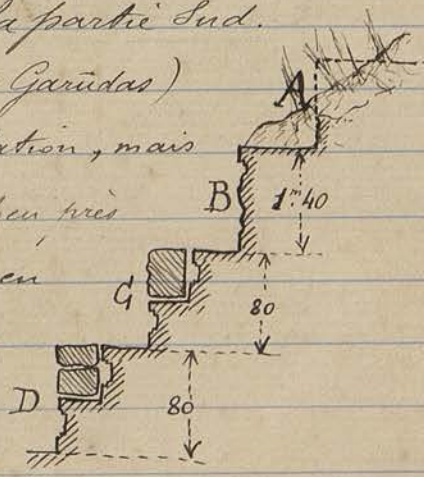 la partie Sud.
Garūdas)
ation, mais
peu près
en
A
B
1m.40
C
80
D
80